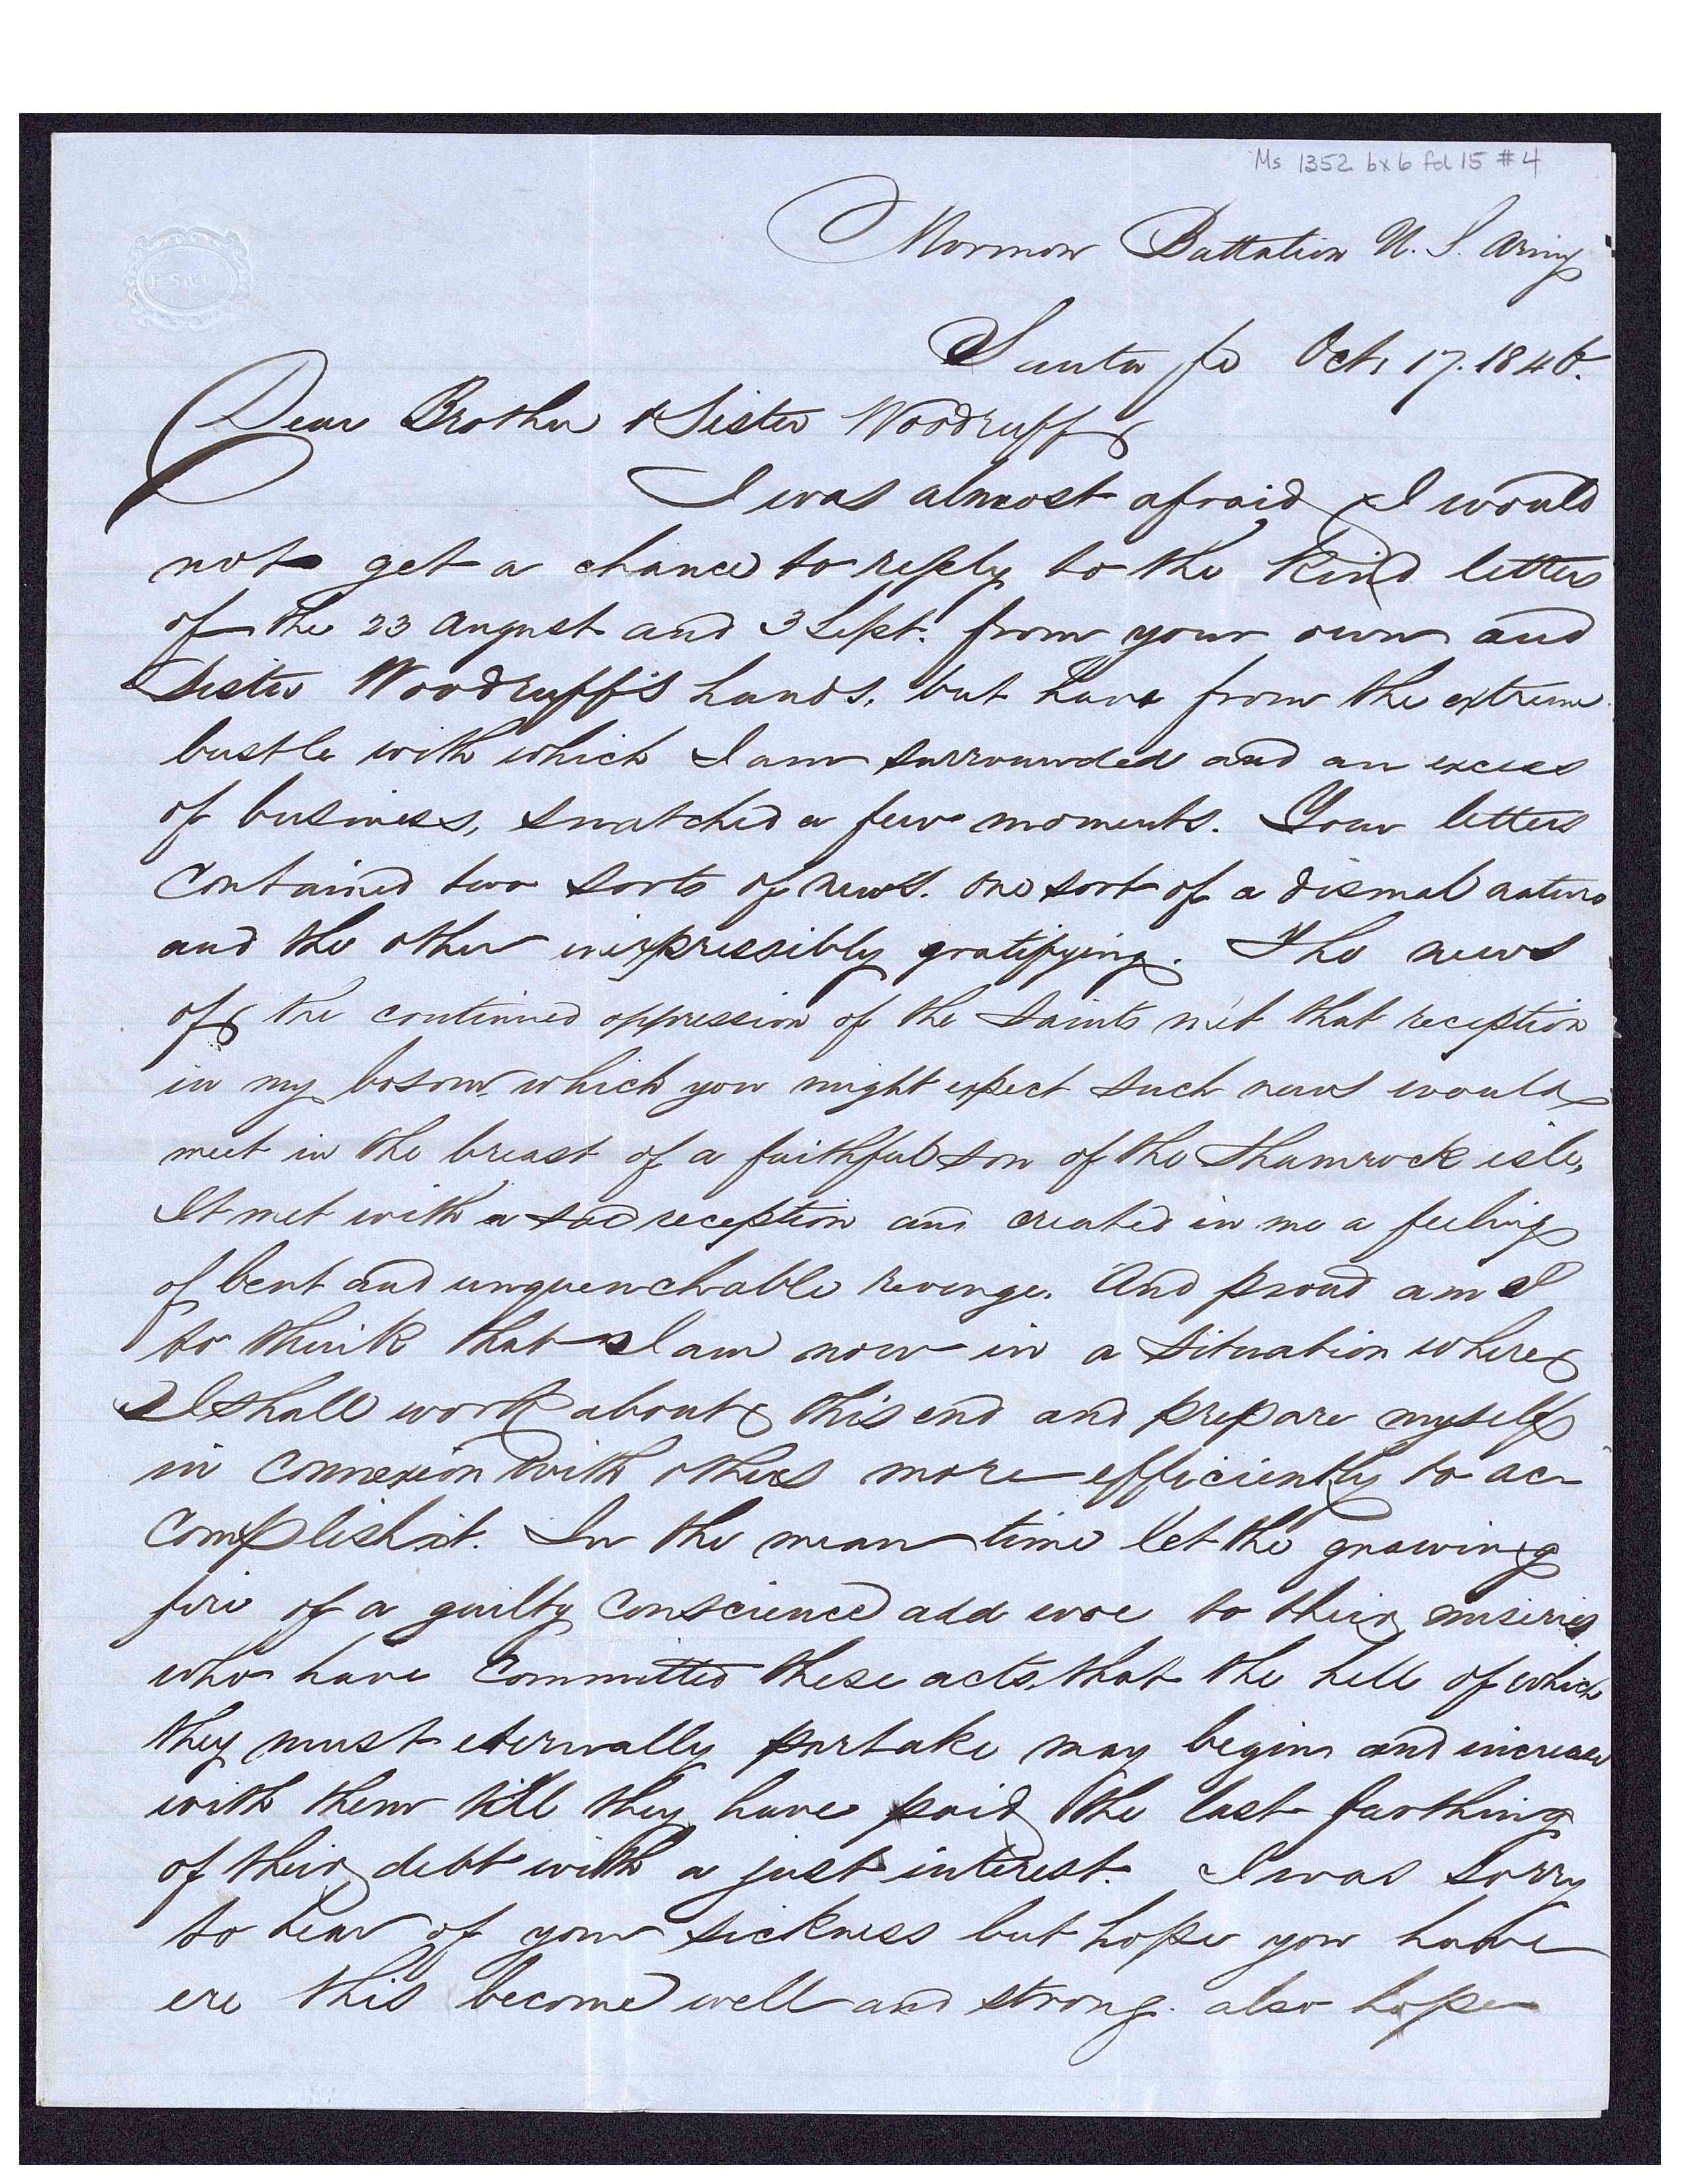 Ms 1352 bx 6 fd 15 #4
Mormon Battalion U. S. Army
Santa fe Oct, 17. 1846.
Dear Brother & Sister Woodruff
I was almost afraid I would
not get a chance to reply to the kind letters
of the 23 August and 3 Sept. from your own and
Sister Woodruff's hands, but have from the extreme
bustle with which I am surrounded and an excess
of business, snatched a few moments. Your letters
contained two sorts of news. one sort of a dismal nature
and the other inexpressibly gratifying. The news
of the continued oppression of the Saints met that reception
in my bosom which you might expect such news would
meet in the breast of a faithful son of the Shamrock isle,
It met with a sad reception and created in me a feeling
of bent and unquenchable revenge. And proud am I
to think that I am now in a situation where
I shall work about this end and prepare myself
in connexion with others more efficiently to ac-
complish it. In the mean time let the gnawing
fire of a guilty conscience add woe to their miseries
who have committed these acts, that the hell of which
they must eternally partake may begin and increase
with them till they have paid the last farthing
of their debt with a just interest. I was sorry
to hear of your sickness but hope you have
ere this become well and strong. also hope